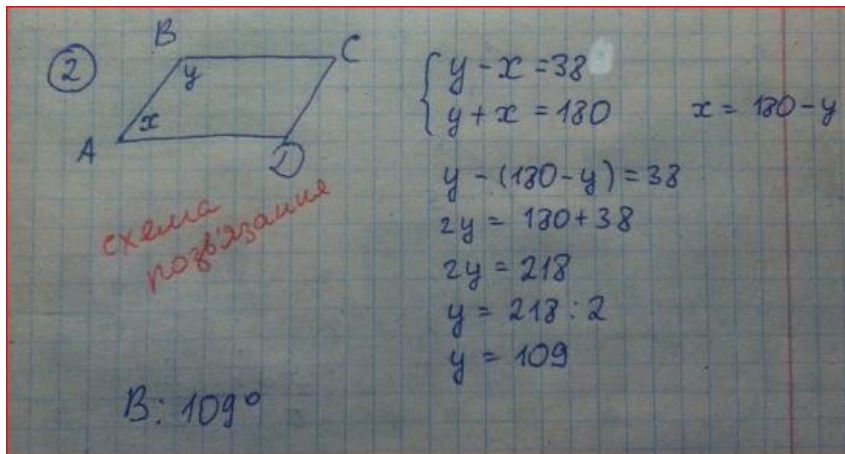 2
B
C
y
x
A
D
схема
розв'язание
{ y - x = 38
y + x = 180 x = 180 - y
y - (180 - y) = 38
2y = 180 + 38
2y = 218
y = 218 : 2
y = 109
В: 109°